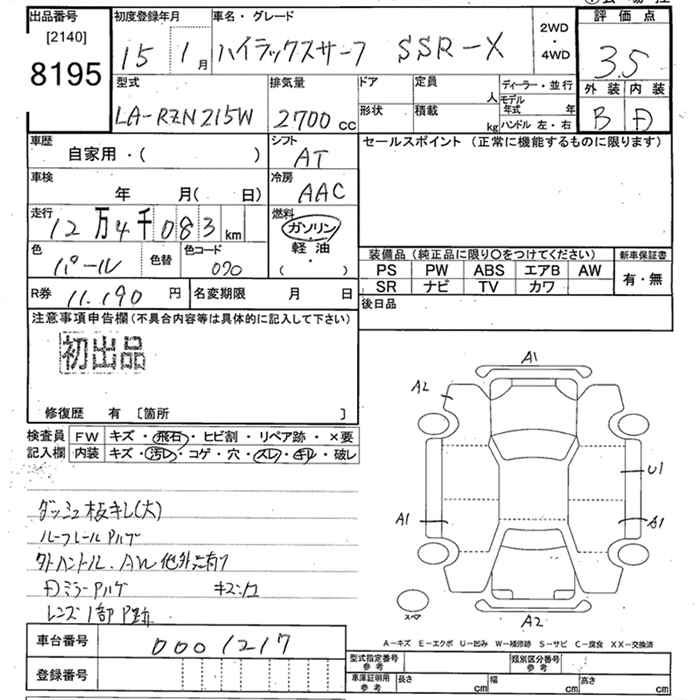 出品番号 初度登録年月 車名・グレード 評価点
[2140]
8195
15 1月 ハイラックスサーフ SSR-X 2WD・4WD 3.5
型式 排気量 ドア 定員 人 ディーラー・並行 外装 内装
LA-RZN215W 2700cc 形状 積載 kg モデル年式 年 B D
ハンドル 左・右
車歴 自家用・( ) シフト AT セールスポイント (正常に機能するものに限ります)
車検 年 月( 日) 冷房 AAC
走行 12万4千083km 燃料 ガソリン・軽油・( )
色 パール 色替 色コード 070
装備品 (純正品に限り〇をつけてください) 新車保証書
PS PW ABS エアB AW 有・無
SR ナビ TV カワ
R券 11,190円 名変期限 月 日 後日品
注意事項申告欄(不具合内容等は具体的に記入して下さい)
初出品
修復歴 有 [箇所 ]
検査員 FW キズ・飛石・ヒビ割・リペア跡・×要
記入欄 内装 キズ・汚レ・コゲ・穴・スレ・キレ・破レ
ダッシュ板キレ(大)
ルーフレールPハゲ
外ハンドル、AW他外品有り
DミラーPハゲ
レンズ1部P跡
A1
A2
U1
A1 A1
スペア
A2
A-キズ E-エクボ U-凹み W-補修跡 S-サビ C-腐食 XX-交換済
車台番号 0001217
型式指定番号 参考 類別区分番号 参考
登録番号
車庫証明用 参考 長さ cm 幅 cm 高さ cm